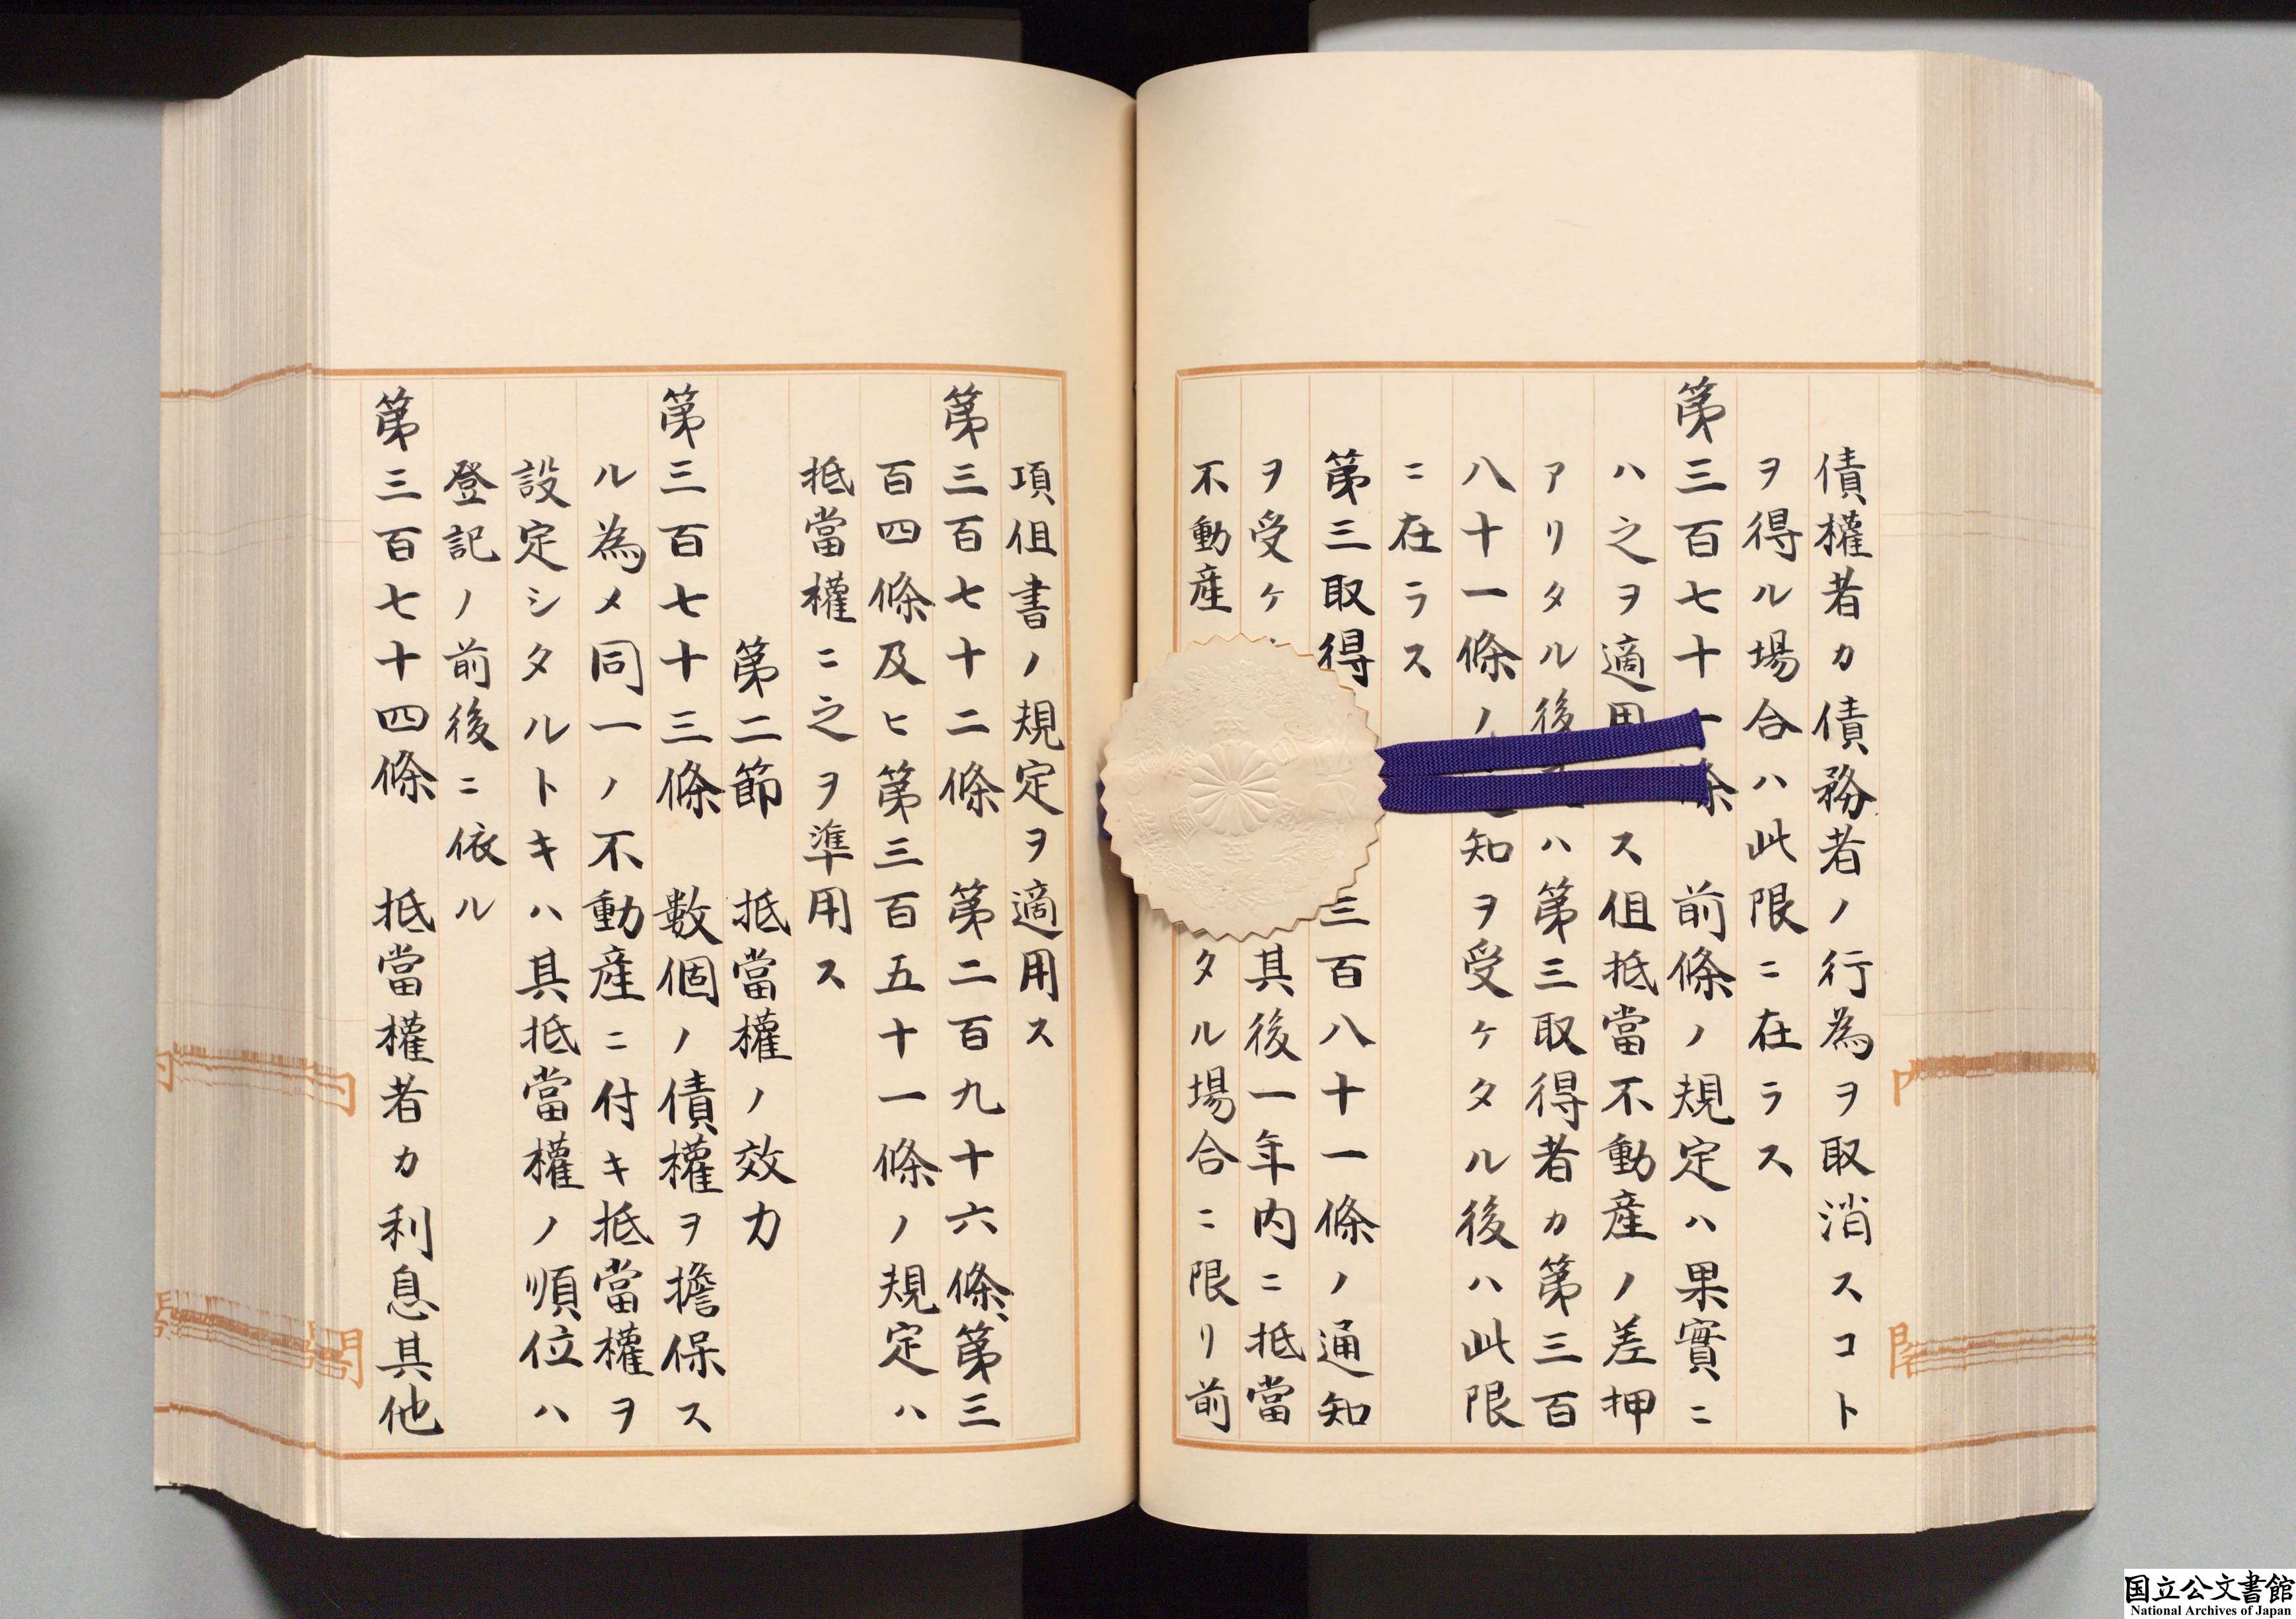 債權者カ債務者ノ行為ヲ取消スコト
ヲ得ル場合ハ此限ニ在ラス
第三百七十一條　前條ノ規定ハ果實ニ
ハ之ヲ適用ス但抵當不動產ノ差押
アリタル後ハ第三取得者カ第三百
八十一條ノ通知ヲ受ケタル後ハ此限
ニ在ラス
第三取得三百八十一條ノ通知
ヲ受ケ其後一年内ニ抵當
不動產タル場合ニ限リ前
項但書ノ規定ヲ適用ス
第三百七十二條　第二百九十六條、第三
百四條及ヒ第三百五十一條ノ規定ハ
抵當權ニ之ヲ準用ス
第二節　抵當權ノ效力
第三百七十三條　數個ノ債權ヲ擔保ス
ル為メ同一ノ不動產ニ付キ抵當權ヲ
設定シタルトキハ其抵當權ノ順位ハ
登記ノ前後ニ依ル
第三百七十四條　抵當權者カ利息其他
内
閣
国立公文書館
National Archives of Japan